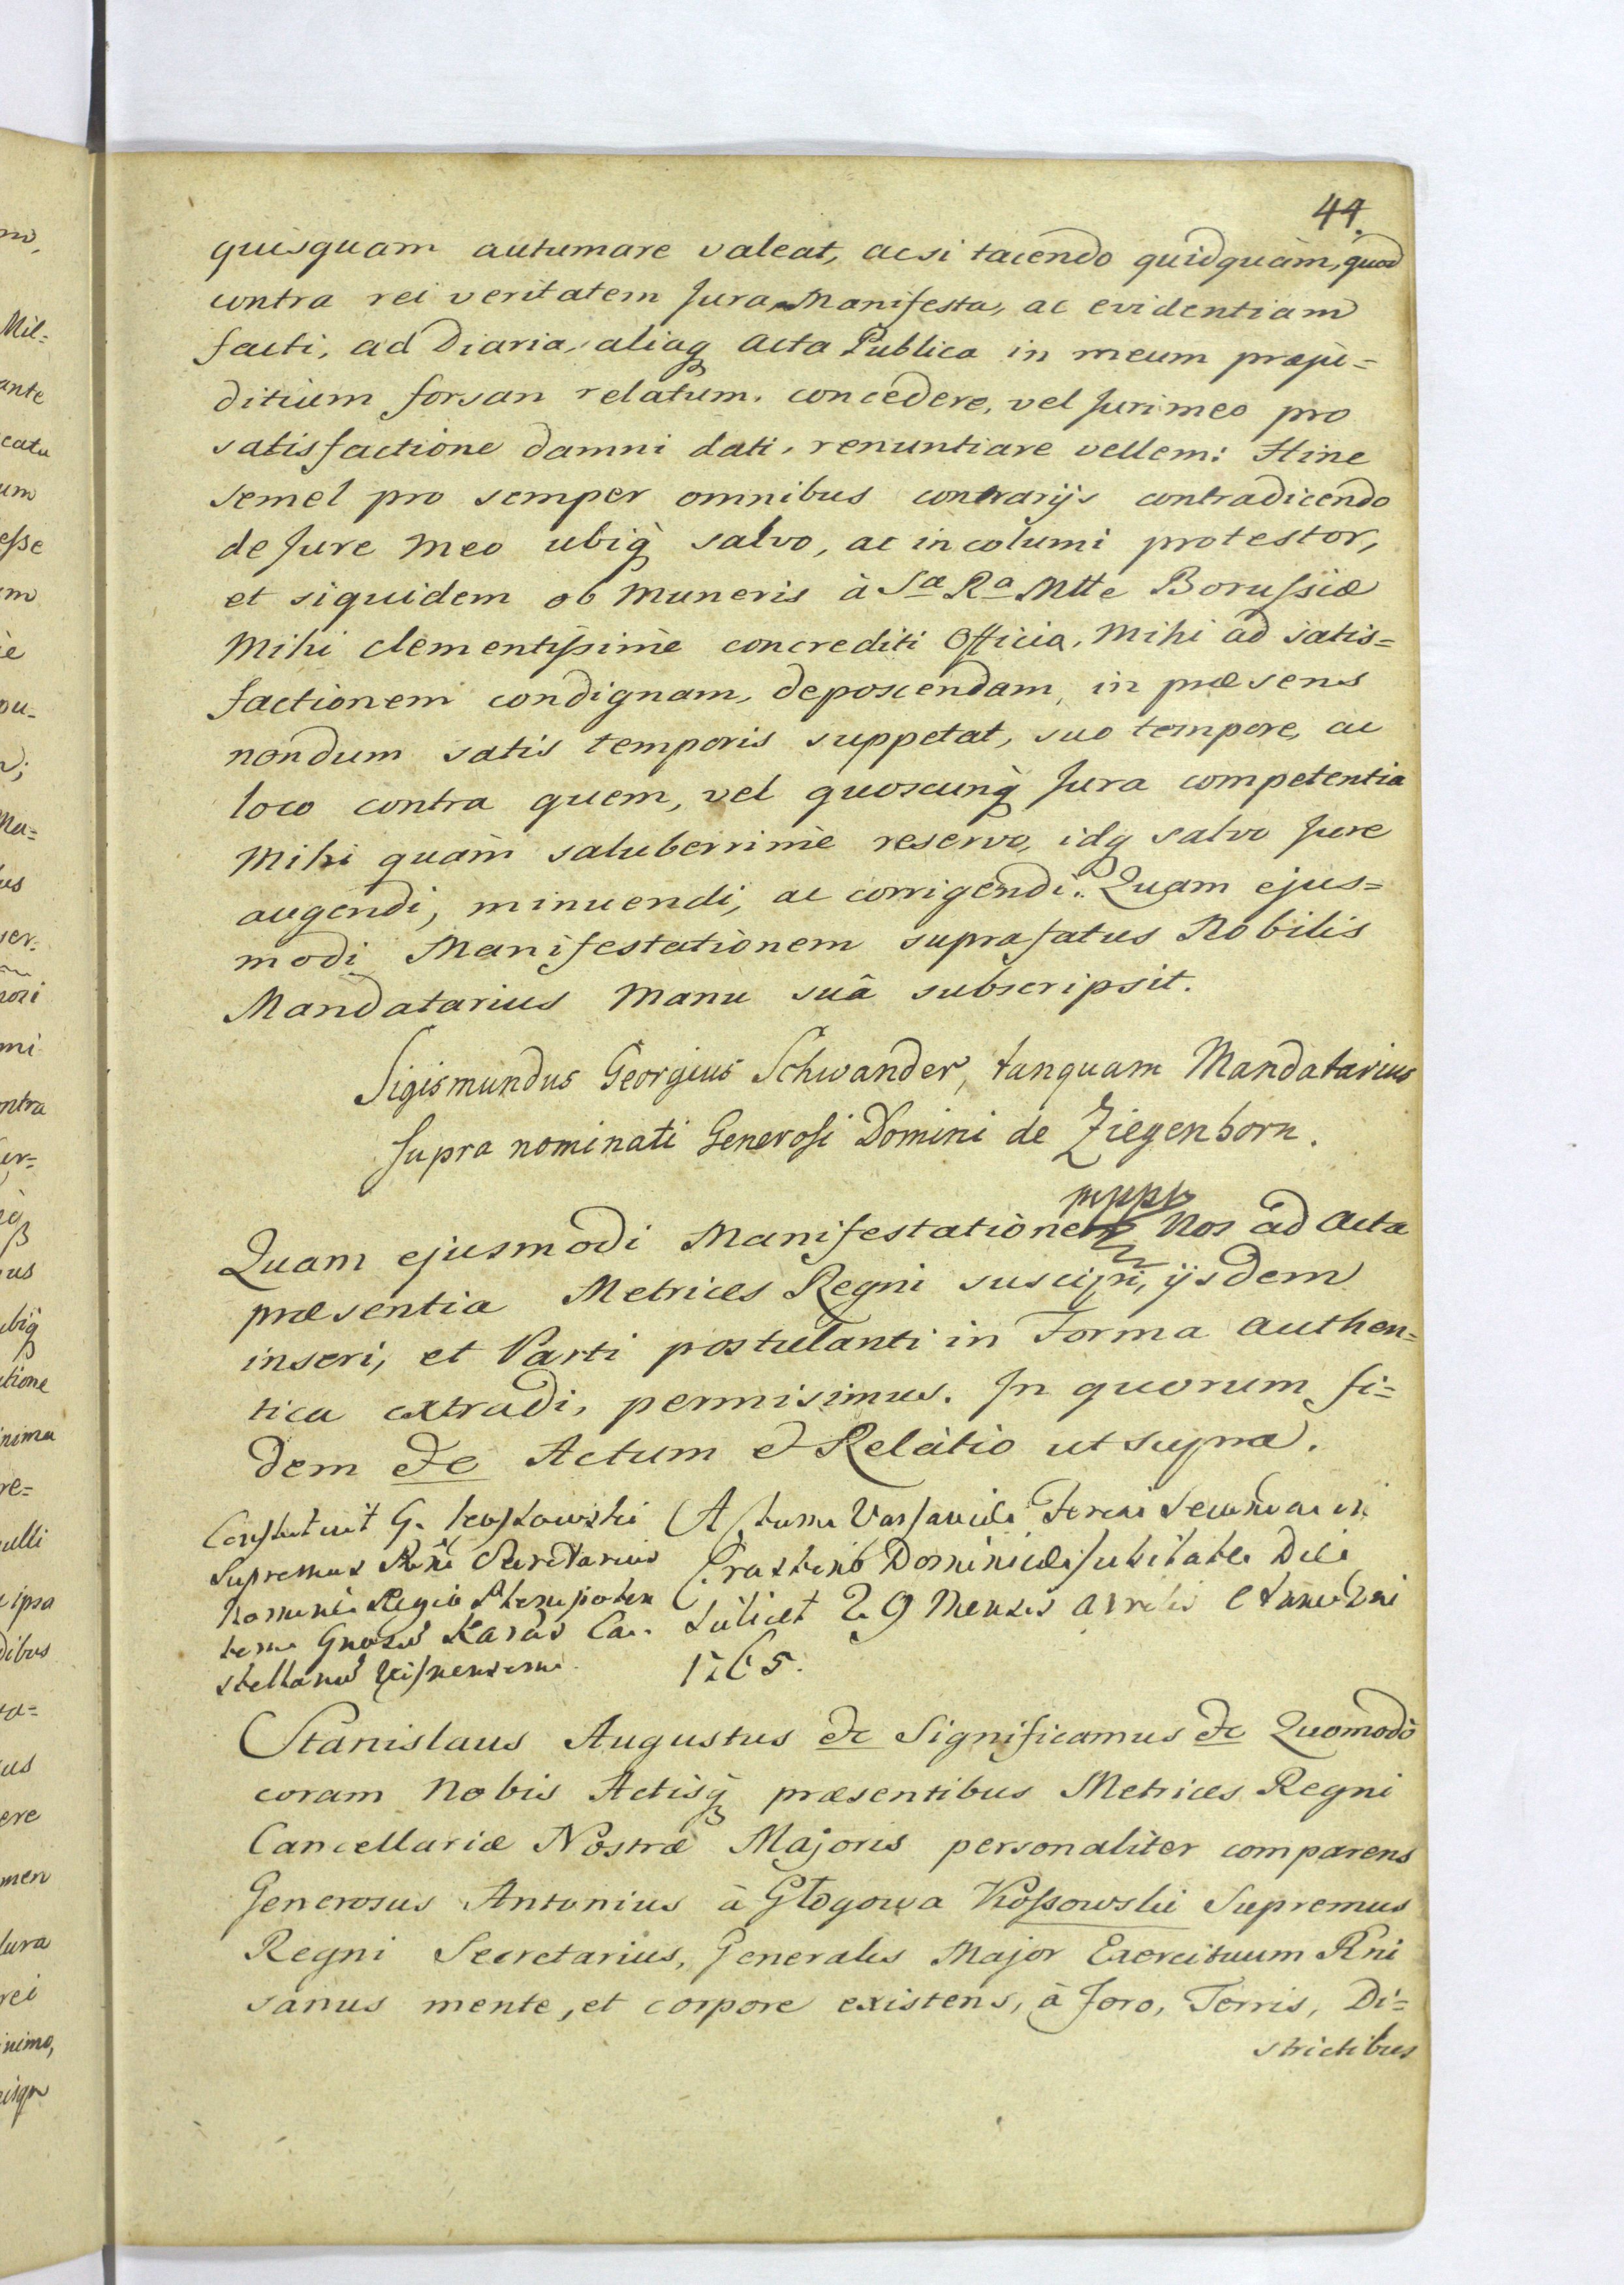 44.
quisquam autumare valeat, acsi tacendo quidquàm, quod
contra rei veritatem Jura Manifesta, ac evidentiam
facti, ad Diaria, aliaq acta Publica in meum præju=
ditium forsan relatum, concedere, vel Juri meo pro
satisfactione damni dati, renuntiare vellem: Hinc
semel pro semper omnibus contrarijs contradicendo
de Jure meo ubiq̀ salvo, ac incolumi protestor,
et siquidem ob Muneris à Sa Ra Mtte Borussiæ
Mihi clementissimè concrediti Officia, Mihi ad satis=
factionem condignam, deposcendam, in præsens
nondum satis temporis suppetat, suo tempore, ac
loco contra quem, vel quoscunq̀ Jura competentia
Mihi quàm saluberrimè reservo, idq salvo Jure
augendi, minuendi, ac corrigendi. Quam ejus=
modi Manifestationem suprafatus Nobilis
Mandatarius Manu suâ subscripsit.
Sigismundus Georgius Schwander, tanquam Mandatarius
supra nominati Generosi Domini de Ziegenhorn.
mppp
Quam ejusmodi Manifestationem Nos ad Acta
præsentia Metrices Regni suscipi, ijsdem
inseri, et Parti postulanti in Forma authen=
tica extradi, permisimus. In quorum fi=
dem &c Actum & Relatio ut supra.
Constituit G. Kossowski
Supremus Rni Secretarius
Nomine Regio Plenipoten
tem Gnosũ Karas Ca
stellanũ Visnensem
Actum Varsaviæ Feria Secunda in
Crastino Dominicæ Jubilate Die
scilicet 29 Mensis Aprilis Anno Dni
1765.
Stanislaus Augustus &c Significamus &c Quomodò
coram Nobis Actisq̀ præsentibus Metrices Regni
Cancellariæ Nostræ Majoris personaliter comparens
Generosus Antonius à Głogowa Kossowski Supremus
Regni Secretarius, Generalis Major Exercituum Rni
sanus mente, et corpore existens, à Foro, Terris, Di=
strictibus